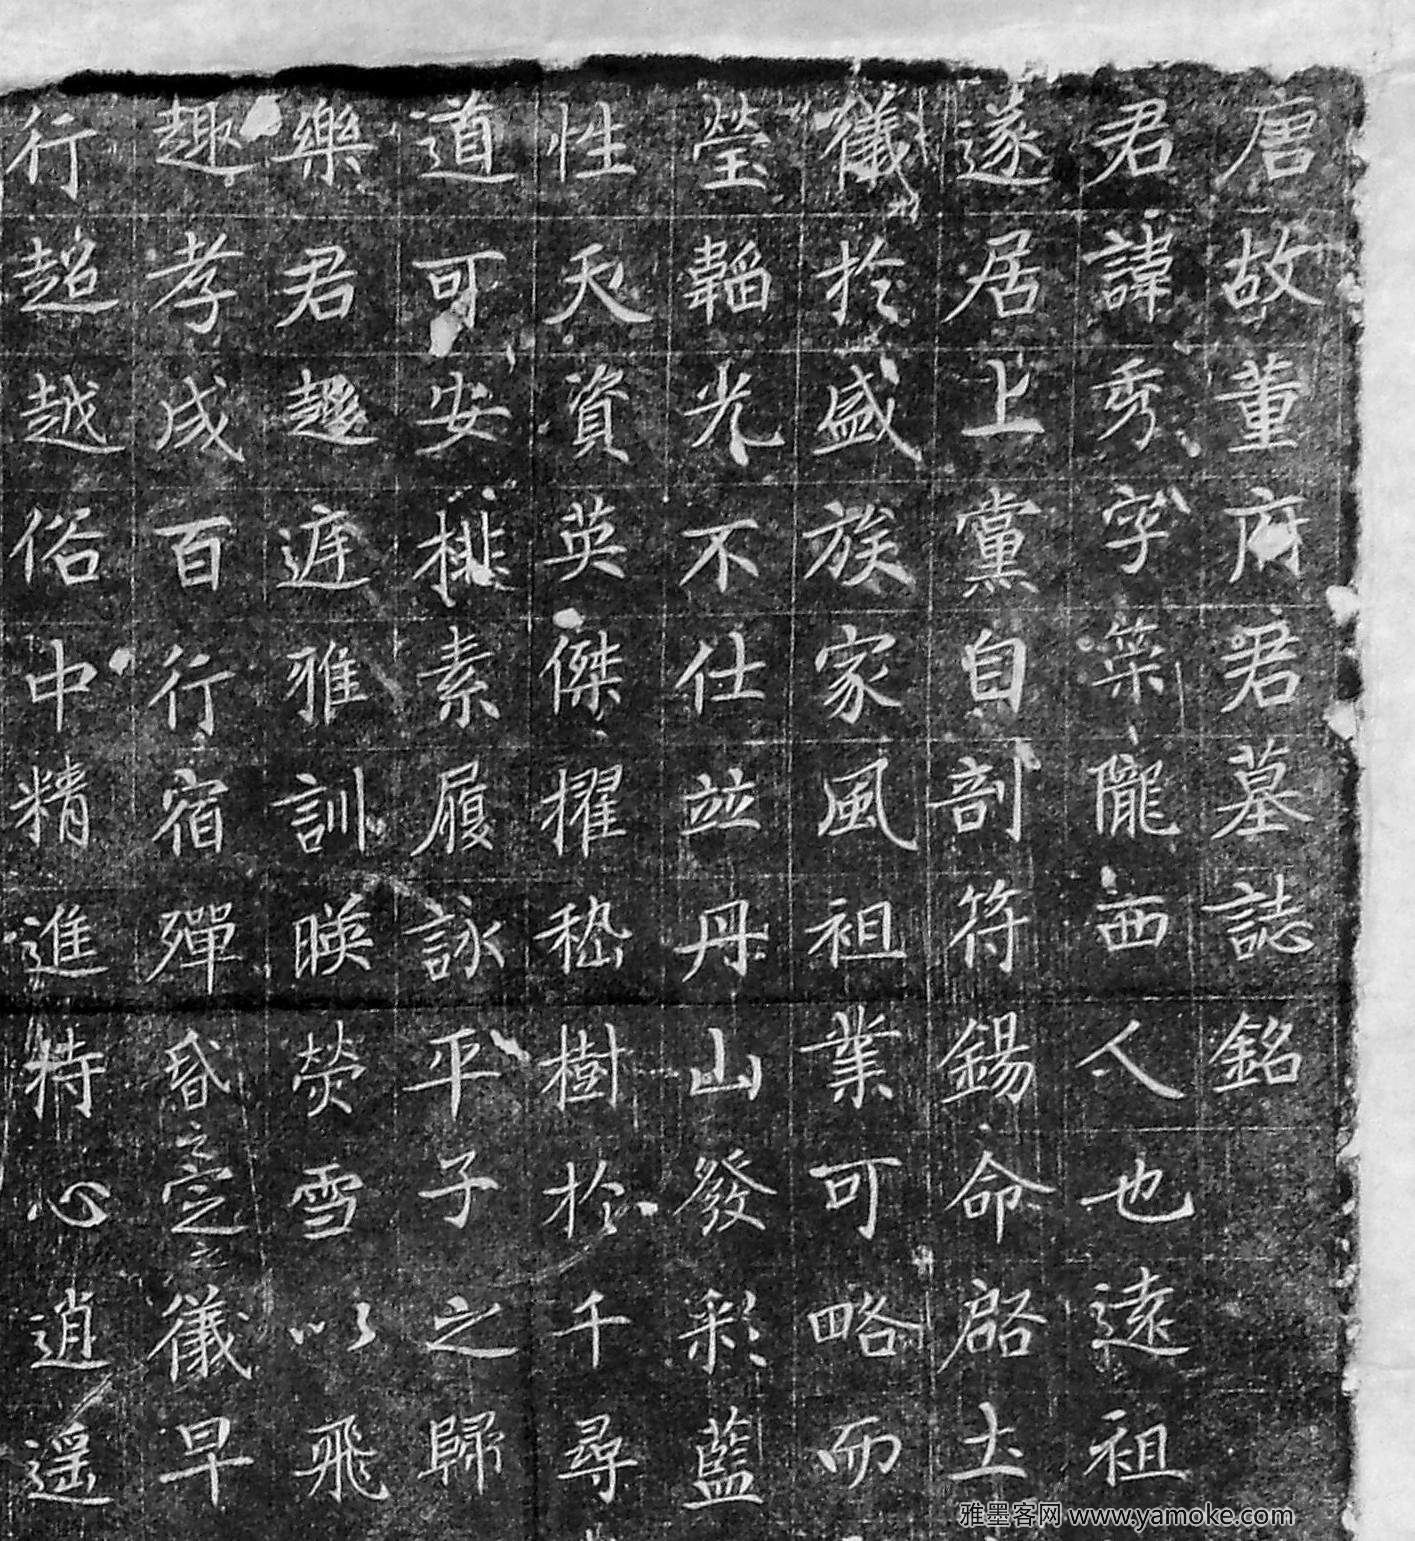 唐故董府君墓誌銘
君諱秀字䇿隴西人也遠祖
遂居上黨自剖符錫命啟土
儀於盛族家風祖業可略而
瑩韜光不仕並丹山發彩藍
性天資英傑擢嵇樹於千尋
道可安排素履詠平子之歸
樂君趍庭雅訓暎熒雪以飛
趣孝成百行宿殫昏定之儀早
行超越俗中精進持心逍遥
雅墨客网 www.yamoke.com